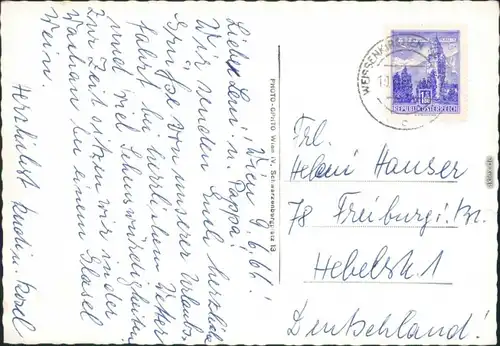 Wien 9.6.66!
Liebe Loni! u. Pappa!
Wir senden Euch herzliche
Grüße von unserer Urlaubs-
fahrt bei herrlichem Wetter
und viel Sehenswürdigkeiten.
Zur Zeit sitzen wir in der
Wachau bei einem Glasel
Wein.
Herzlichst
PHOTO-CHATO Wien IV, Schwarzenbergplatz 13
WEISSENKIRCHEN
REPUBLIK ÖSTERREICH
Frl.
Heleni Hauser
78 Freiburg i. Br.
Hebelstr. 1
Deutschland!